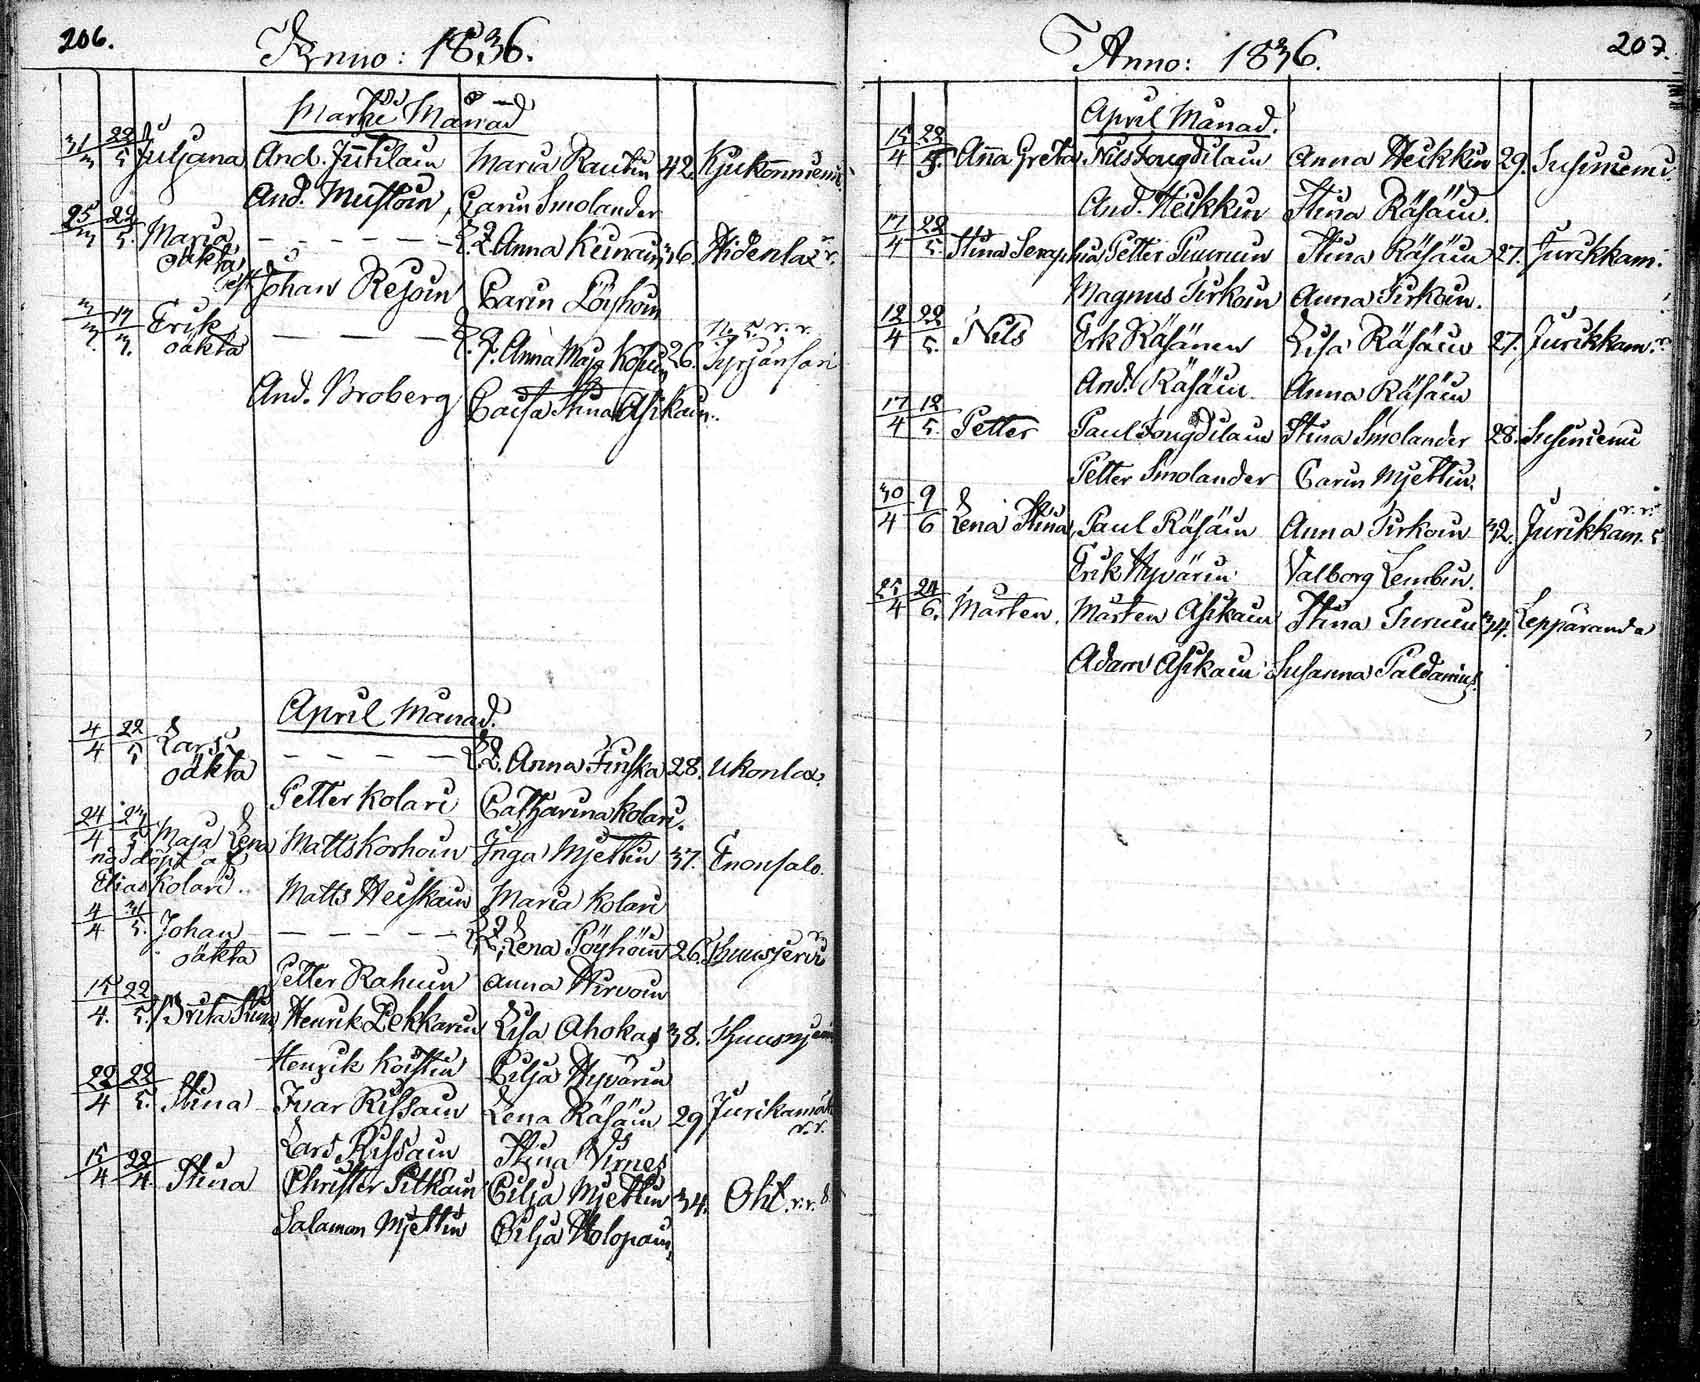 206.
Anno: 1836.
Martii Månad
31/3 22/5 Juljana And. Juntilain Maria Rautin 42. Kjukonniemi.
And. Mustoin, Carin Smolander
25/3 22/5. Maria - - - - - L. Q. Anna Keinain 36. Hidenlax
oäkta
Johan Rejoin Carin Löyhöin
3/3 17/3. Erik - - - - L. Q. Anna Maja Kopuin 26. Syrjänsari
oäkta
And. Broberg Caisa Stina Asikain.
April Månad.
4/4 22/5 Lars - - - - L. Q. Anna Finska 28. Ukonlax.
oäkta
Petter Kolari Catharina Kolari.
24/4 23/5 Maja Lena Matts Korhoin Inga Mjettin 37. Enonsalo.
nöddöpt af
Elias Kolari. Matts Heiskain Maria Kolari
4/4 31/5. Johan - - - - - L. Q. Lena Löyhöin 26.
oäkta
Petter Rahuin Anna Hirvoin
15/4. 22/5. Brita Stina Henrik Pekkarin Lisa Ahokas 38.
Henrik Koistin Cilja Hyvärin
22/4 22/5. Stina Ivar Rissain Lena Räsäin 29 Jurikamäk
r.r.
Lars Rissain Stina Virnes
15/4 22/4. Stina Christer Pitkain Cilja Mjettin 34. Oht. r.r. 8.
Salamon Mjettin Cilja Holopain.
207.
Anno: 1836.
April Månad.
15/4 22/5. Anna Greta Nils Fougdilain Anna Heikkin 29. Susiniemi.
And. Heikkin Stina Räsäin.
17/4 22/5. Stina Seraphia Petter Turunen Stina Räsäin 27. Jurikkam.
Magnus Turkoin Anna Turkoin.
12/4 22/5. Nils Erk Räsänen Lisa Räsäin 27. Jurikkam.
And. Räsäin Anna Räsäin
17/4 12/5. Petter Paul Fougdilain Stina Smolander 28. Susiniemi
Petter Smolander Carin Mjettin.
30/4 9/6 Lena Stina Paul Räsäin Anna Turkoin 32. Jurikkam. 5.
Erik Hyvärin Valborg Lembin.
25/4 24/6. Mårten. Mårten Asikain Stina Turuin 34. Lepparanda
Adam Asikain Susanna Paldanius.